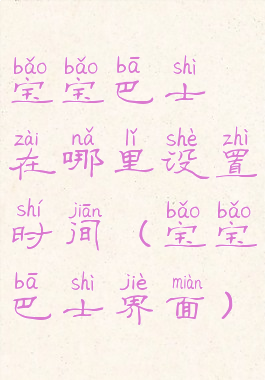 bǎo bǎo bā shì
宝宝巴士
zài nǎ lǐ shè zhì
在哪里设置
shí jiān bǎo bǎo
时间（宝宝
bā shì jiè miàn
巴士界面）